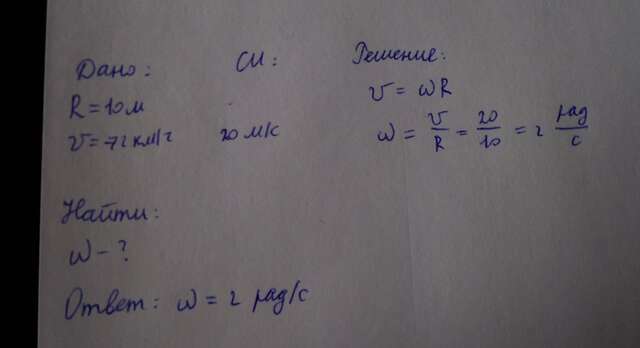 Дано:
СИ:
Решение:
R = 10 м
v = 72 км/ч
20 м/с
v = ωR
ω = v/R = 20/10 = 2 рад/с
Найти:
ω - ?
Ответ: ω = 2 рад/с